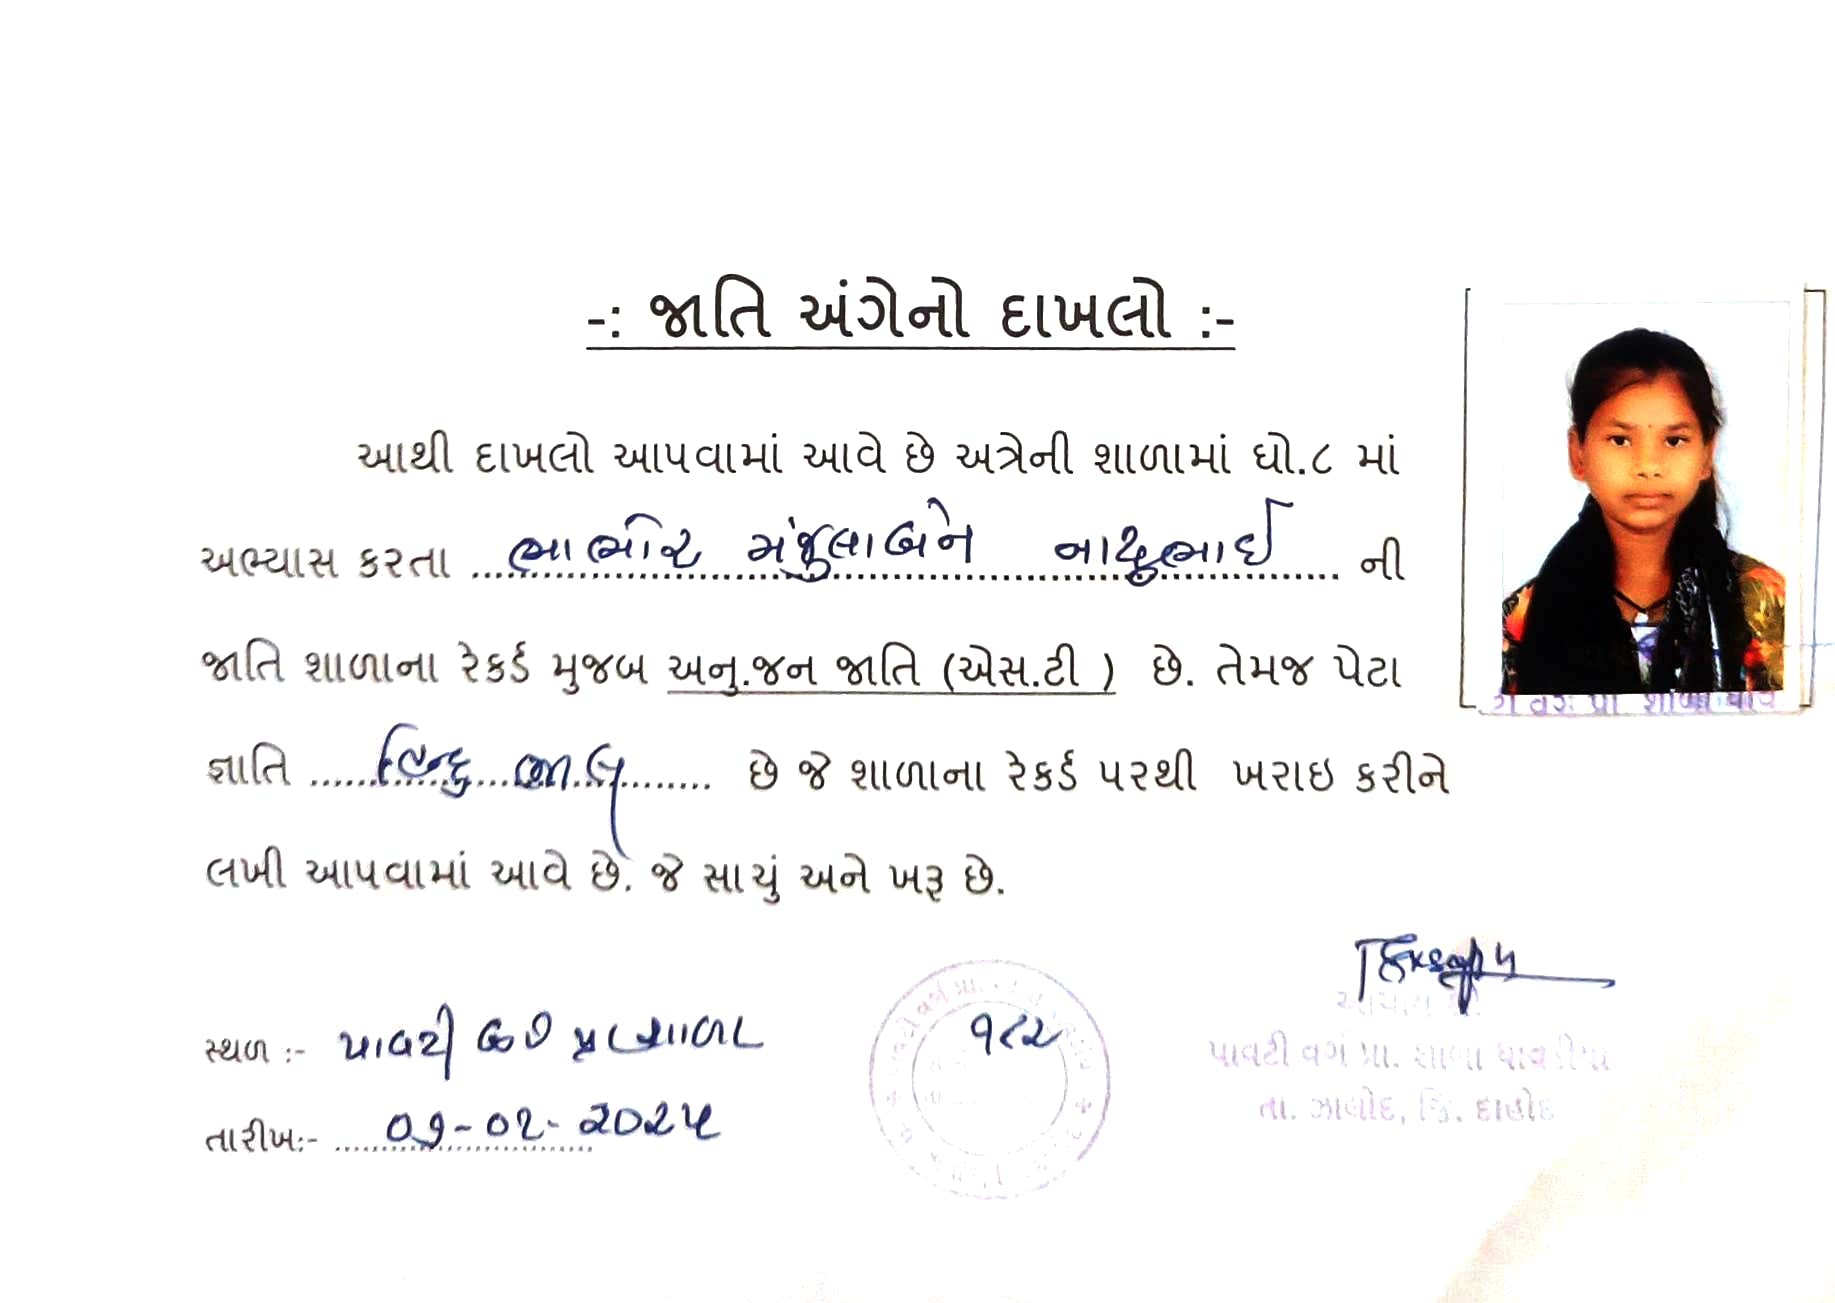 -: જાતિ અંગેનો દાખલો :-
આથી દાખલો આપવામાં આવે છે અત્રેની શાળામાં ધો.૮ માં
અભ્યાસ કરતા ભાભોર મંજુલાબેન નાથુભાઈ ની
જાતિ શાળાના રેકર્ડ મુજબ અનુ.જન જાતિ (એસ.ટી ) છે. તેમજ પેટા
જ્ઞાતિ હિન્દુ ભીલ છે જે શાળાના રેકર્ડ પરથી ખરાઇ કરીને
લખી આપવામાં આવે છે. જે સાચું અને ખરૂ છે.
સ્થળ :- પાવટી વર્ગ પ્રા શાળા
૧૮૨
આચાર્ય શ્રી
પાવટી વર્ગ પ્રા. શાળા
તા. ઝાલોદ, જિ. દાહોદ
તારીખ:- ૦૭-૦૨-૨૦૨૫